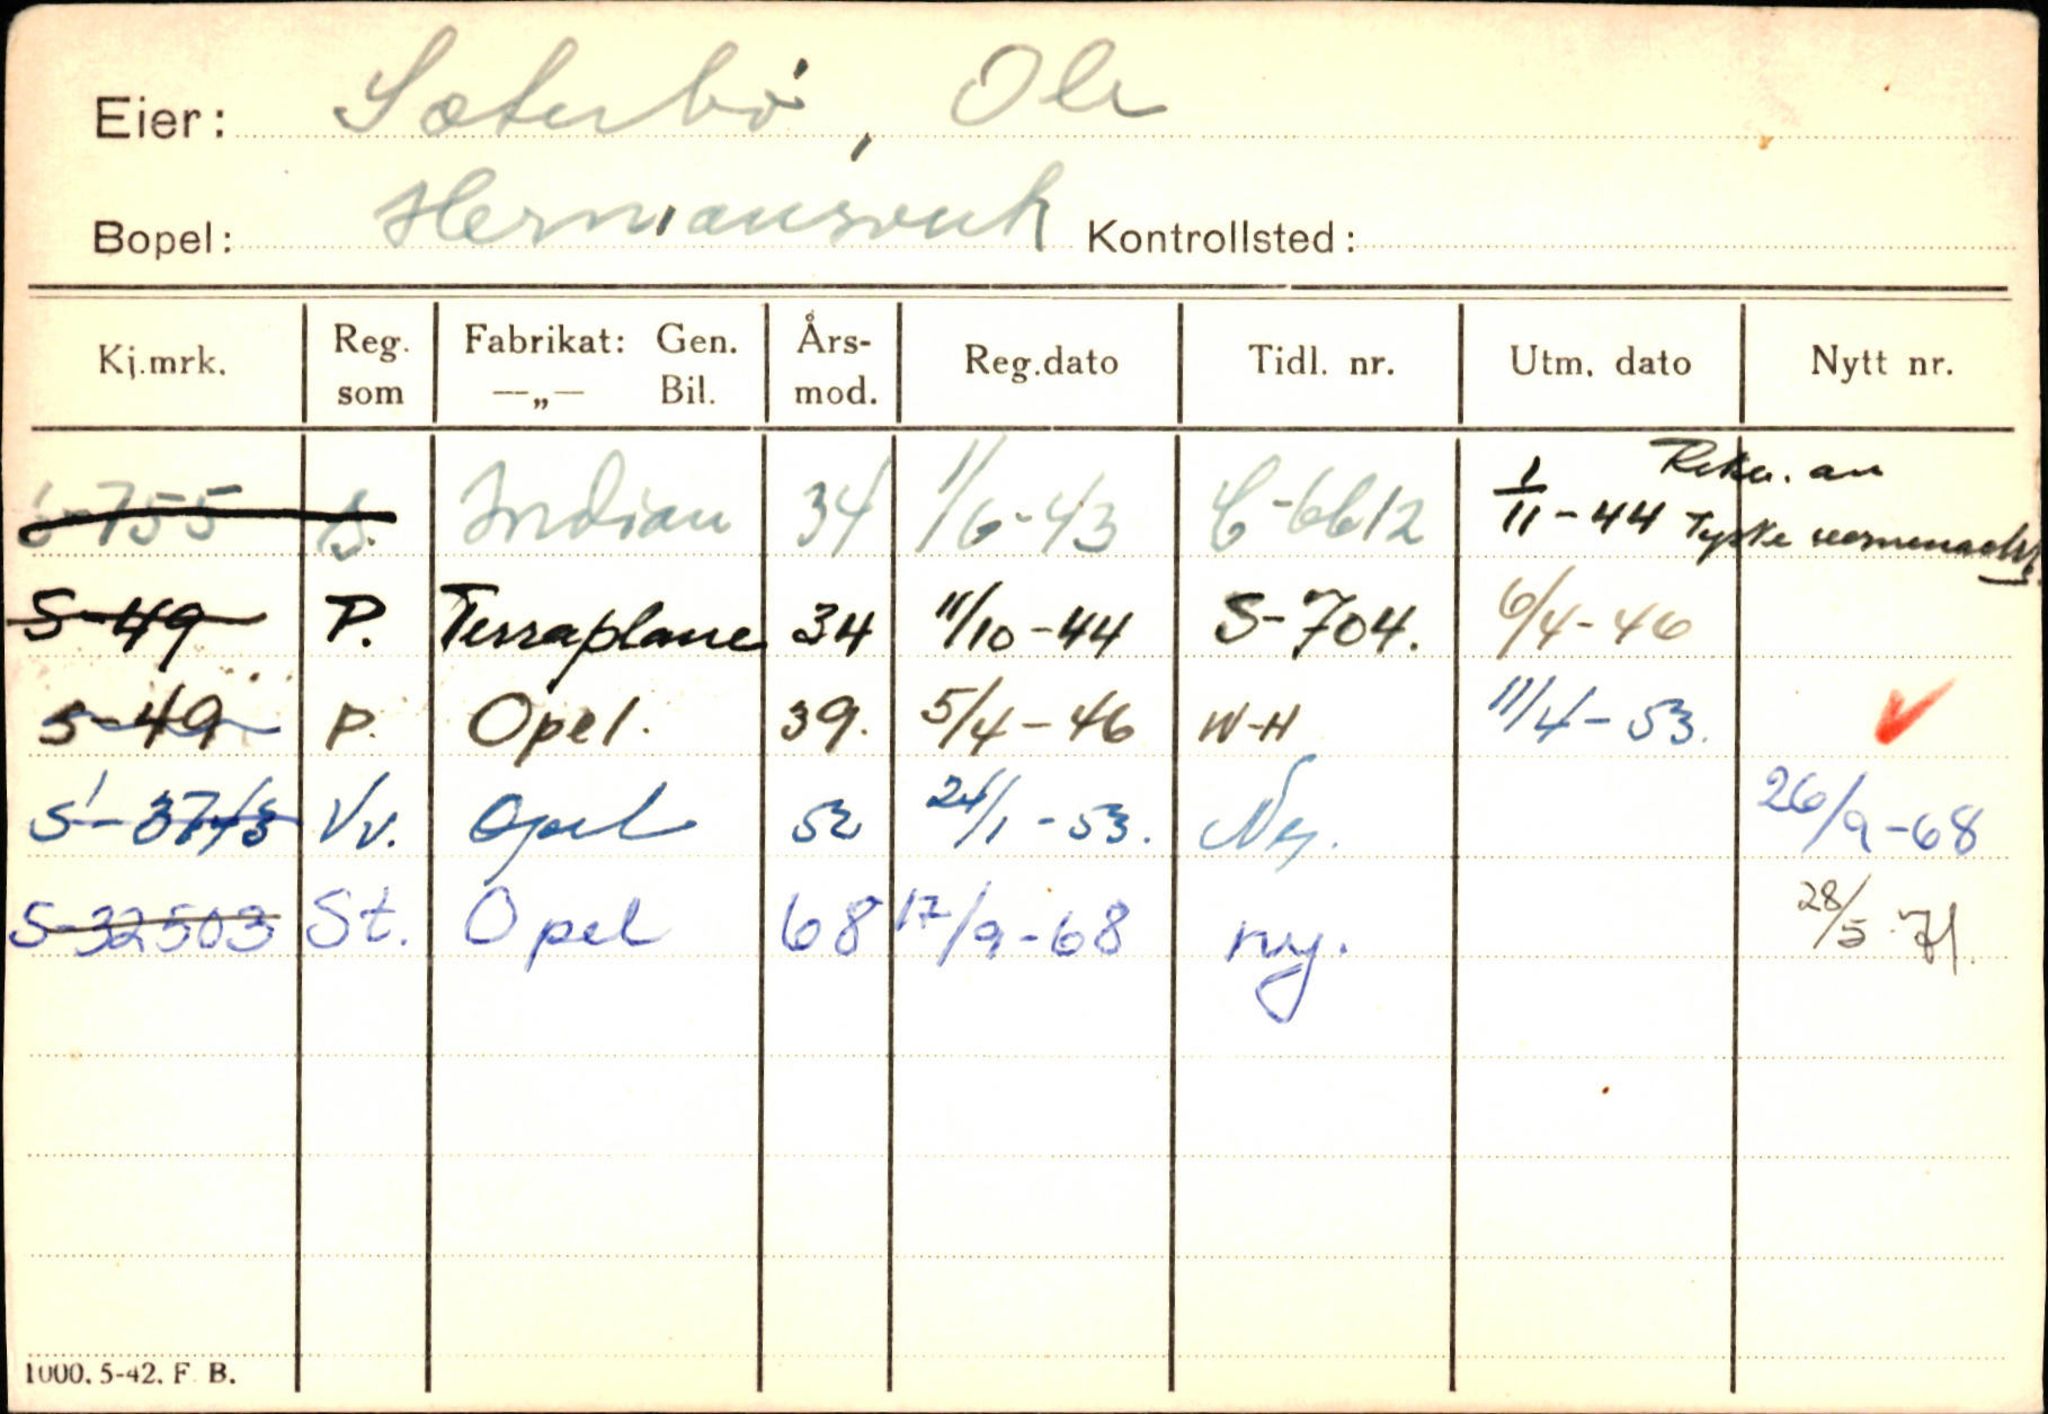 Eier: Sæterbö, Ole
Bopel: Hermansverk Kontrollsted:
Kj.mrk. Reg. som Fabrikat: Gen. —„— Bil. Års- mod. Reg.dato Tidl. nr. Utm. dato Nytt nr.
S-755 Indian 34 1/6-43 C-6612 1/11-44 Rekv. av
Tyske vermenacht
S-49 P. Terraplane 34 11/10-44 S-704. 6/4-46
S-49 P. Opel. 39. 5/4-46 W-H 11/4-53.
S-3743 Vv. Opel 52 24/1-53. Ny. 26/9-68
S-32503 St. Opel 68 17/9-68 ny. 28/5-71.
1000. 5-42. F. B.